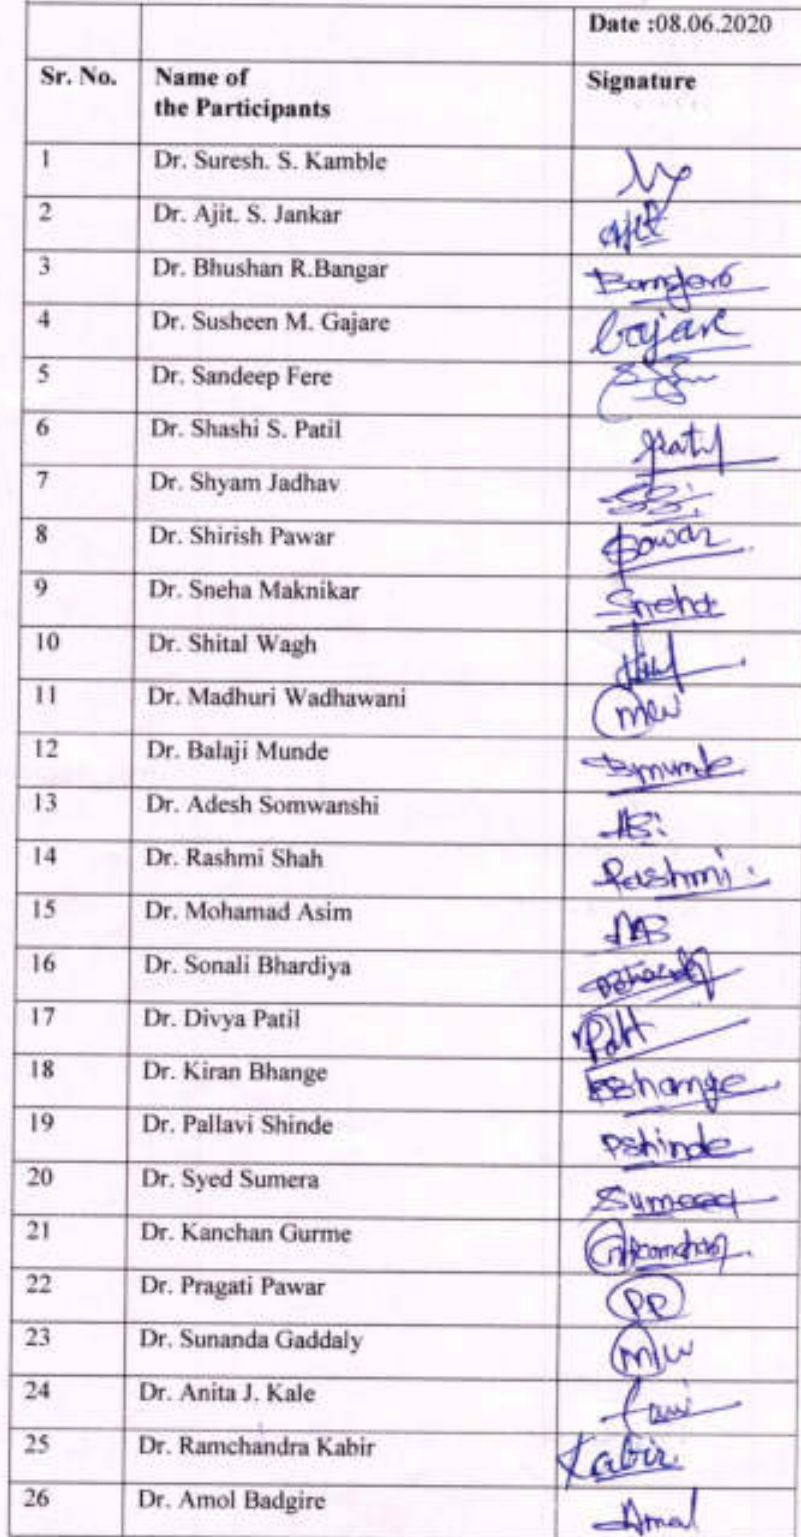 Date :08.06.2020
Sr. No. Name of the Participants Signature
1 Dr. Suresh. S. Kamble
2 Dr. Ajit. S. Jankar Ajit
3 Dr. Bhushan R.Bangar
4 Dr. Susheen M. Gajare Gajare
5 Dr. Sandeep Fere
6 Dr. Shashi S. Patil
7 Dr. Shyam Jadhav
8 Dr. Shirish Pawar Pawar
9 Dr. Sneha Maknikar Sneha
10 Dr. Shital Wagh
11 Dr. Madhuri Wadhawani
12 Dr. Balaji Munde Bmunde
13 Dr. Adesh Somwanshi
14 Dr. Rashmi Shah Rashmi
15 Dr. Mohamad Asim
16 Dr. Sonali Bhardiya
17 Dr. Divya Patil
18 Dr. Kiran Bhange KBhange
19 Dr. Pallavi Shinde Pshinde
20 Dr. Syed Sumera Sumera
21 Dr. Kanchan Gurme
22 Dr. Pragati Pawar PP
23 Dr. Sunanda Gaddaly
24 Dr. Anita J. Kale
25 Dr. Ramchandra Kabir Kabir
26 Dr. Amol Badgire Amol